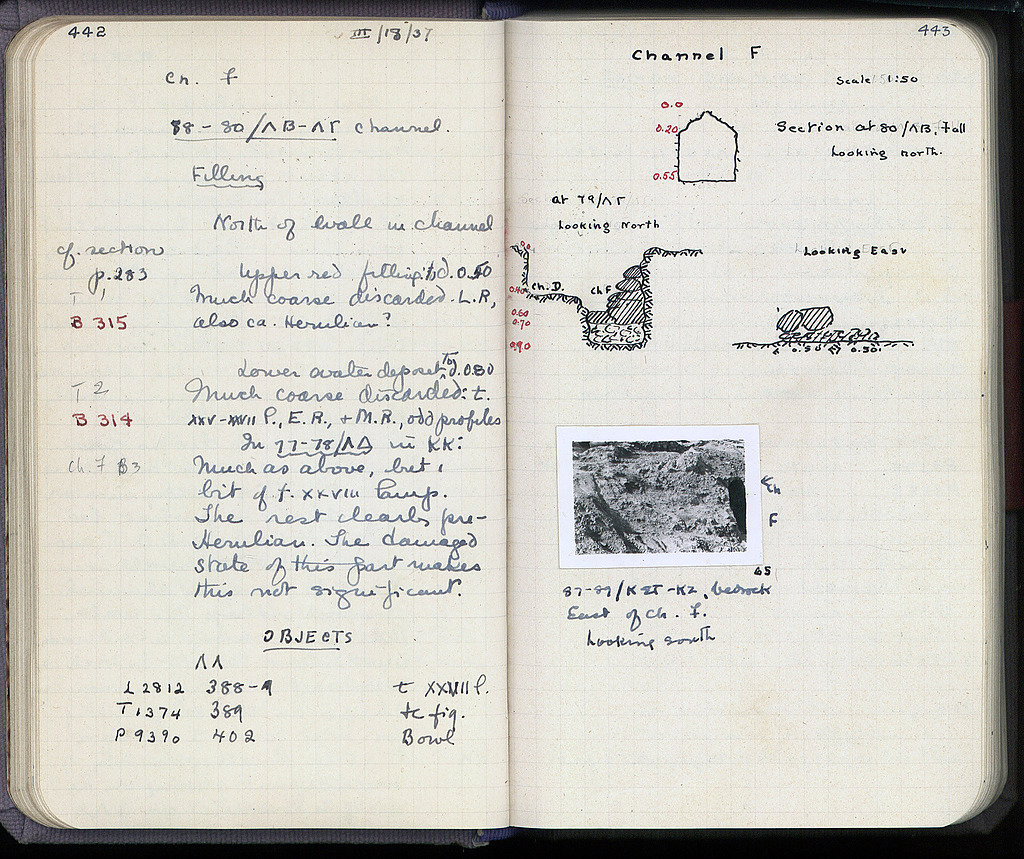 442
III/18/37
Ch. F
78-80/ΛΒ-ΛΓ channel.
Filling
North of wall in channel
cf. section
p. 283
Upper red filling to d. 0.50
T 1
Much coarse discarded. L.R,
B 315
also ca. Herulian?
Lower water deposit to d. 0.80
T 2
Much coarse discarded: t.
B 314
XXV-XXVII P., E.R., + M.R., odd profiles
In 77-78/ΛΔ in KK:
Ch. F B3
Much as above, but 1
bit of t. XXVIII lamp.
The rest clearly pre-
Herulian. The damaged
state of this part makes
this not significant.
OBJECTS
ΛΛ
L 2812 388-9 t XXVIII P.
T 1374 389 tc fig.
P 9390 402 Bowl
443
Channel F
Scale 1:50
0.0
0.20
0.55
Section at 80/ΛΒ, Fall
Looking north.
at 79/ΛΓ
Looking North
Looking East
0.0
Ch. D.
Ch F
0.40
0.60
0.70
0.90
0.50
0.50
Ch
F
65
87-89/ , bedrock
East of Ch. F.
Looking south